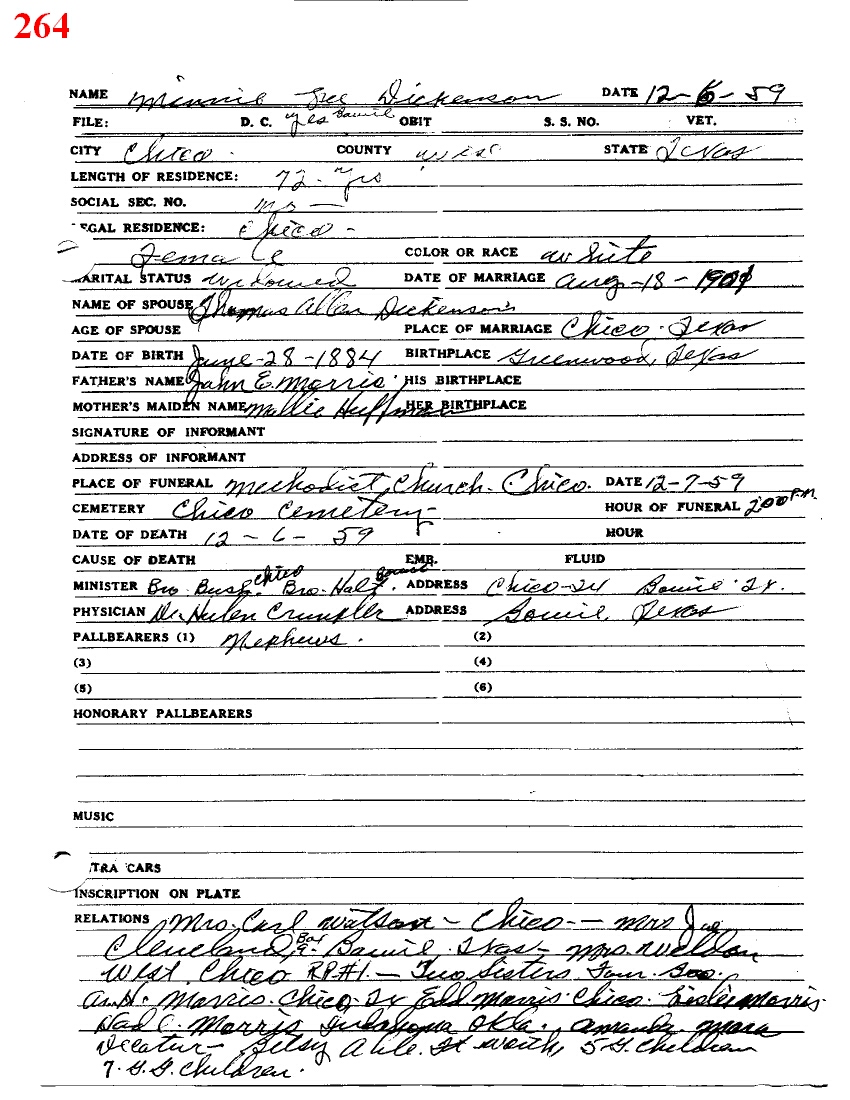 264
NAME Minnie Dickenson DATE 12-6-59
FILE: D. C. yes Bowie OBIT S. S. NO. VET.
CITY Chico. COUNTY Wise STATE Texas
LENGTH OF RESIDENCE: 72-yrs
SOCIAL SEC. NO.
EGAL RESIDENCE: Chico -
Female COLOR OR RACE White
ARITAL STATUS Widowed DATE OF MARRIAGE Aug-18-1901
NAME OF SPOUSE Thomas Allen Dickenson
AGE OF SPOUSE PLACE OF MARRIAGE Chico. Texas
DATE OF BIRTH June-28-1884 BIRTHPLACE Greenwood, Texas
FATHER'S NAME John E. Morris HIS BIRTHPLACE
MOTHER'S MAIDEN NAME Mollie Huffman HER BIRTHPLACE
SIGNATURE OF INFORMANT
ADDRESS OF INFORMANT
PLACE OF FUNERAL Methodist Church. Chico. DATE 12-7-59
CEMETERY Chico Cemetery HOUR OF FUNERAL 2:00 P.M.
DATE OF DEATH 12-6-59 HOUR
CAUSE OF DEATH EMB. FLUID
MINISTER Bro. Bush. Chico Bro. Bowie ADDRESS Chico-Tx Bowie Tx.
PHYSICIAN Dr. Helen Crumpler ADDRESS Bowie, Texas
PALLBEARERS (1) Nephews. (2)
(3) (4)
(5) (6)
HONORARY PALLBEARERS
MUSIC
TRA CARS
INSCRIPTION ON PLATE
RELATIONS Mrs. Carl Watson - Chico - Mrs Joe
Cleveland, Bowie. Texas - Mrs. Weldon
West. Chico R#1. - Two Sisters Four Bro.
Morris. Chico. Tx Morris Chico. Morris
C. Morris Okla.
Decatur - Betsy Ft Worth, 5 G. Children
7. G. G. Children.